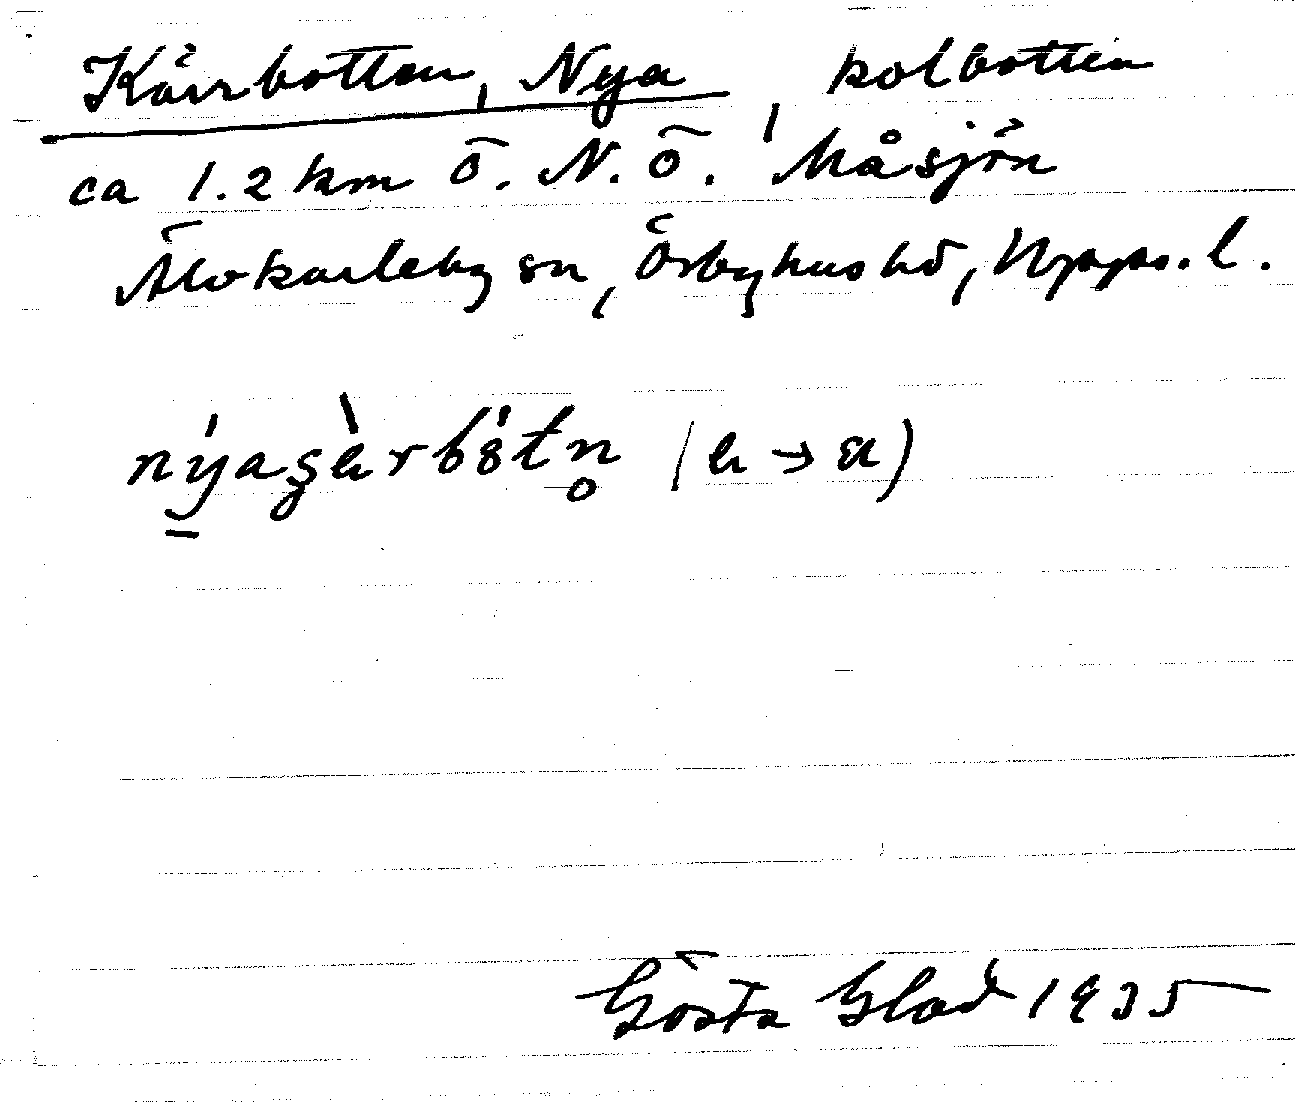 Kärrbotten, Nya, kolbotten
ca 1.2 km Ö. N. Ö. Måsjön
Älvkarleby sn, Örbyhus hd, Upps. l.
Gösta Glad 1935